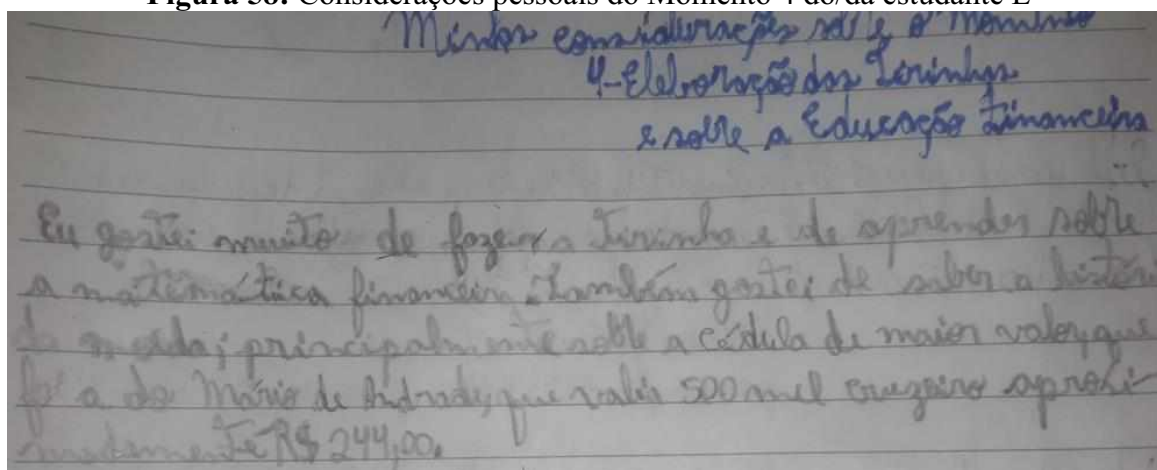 Figura 38: Considerações pessoais do Momento 4 do/da estudante E
Minhas considerações sobre o Momento
4-Elaboração das Tirinhas
e sobre a Educação Financeira
Eu gostei muito de fazer a Tirinha e de aprender sobre
a matemática financeira. Também gostei de saber a histór
da moeda; principalmente sobre a cédula de maior valor, que
foi a do Mário de Andrade, que valia 500 mil cruzeiro aproxi-
madamente R$ 244,00.